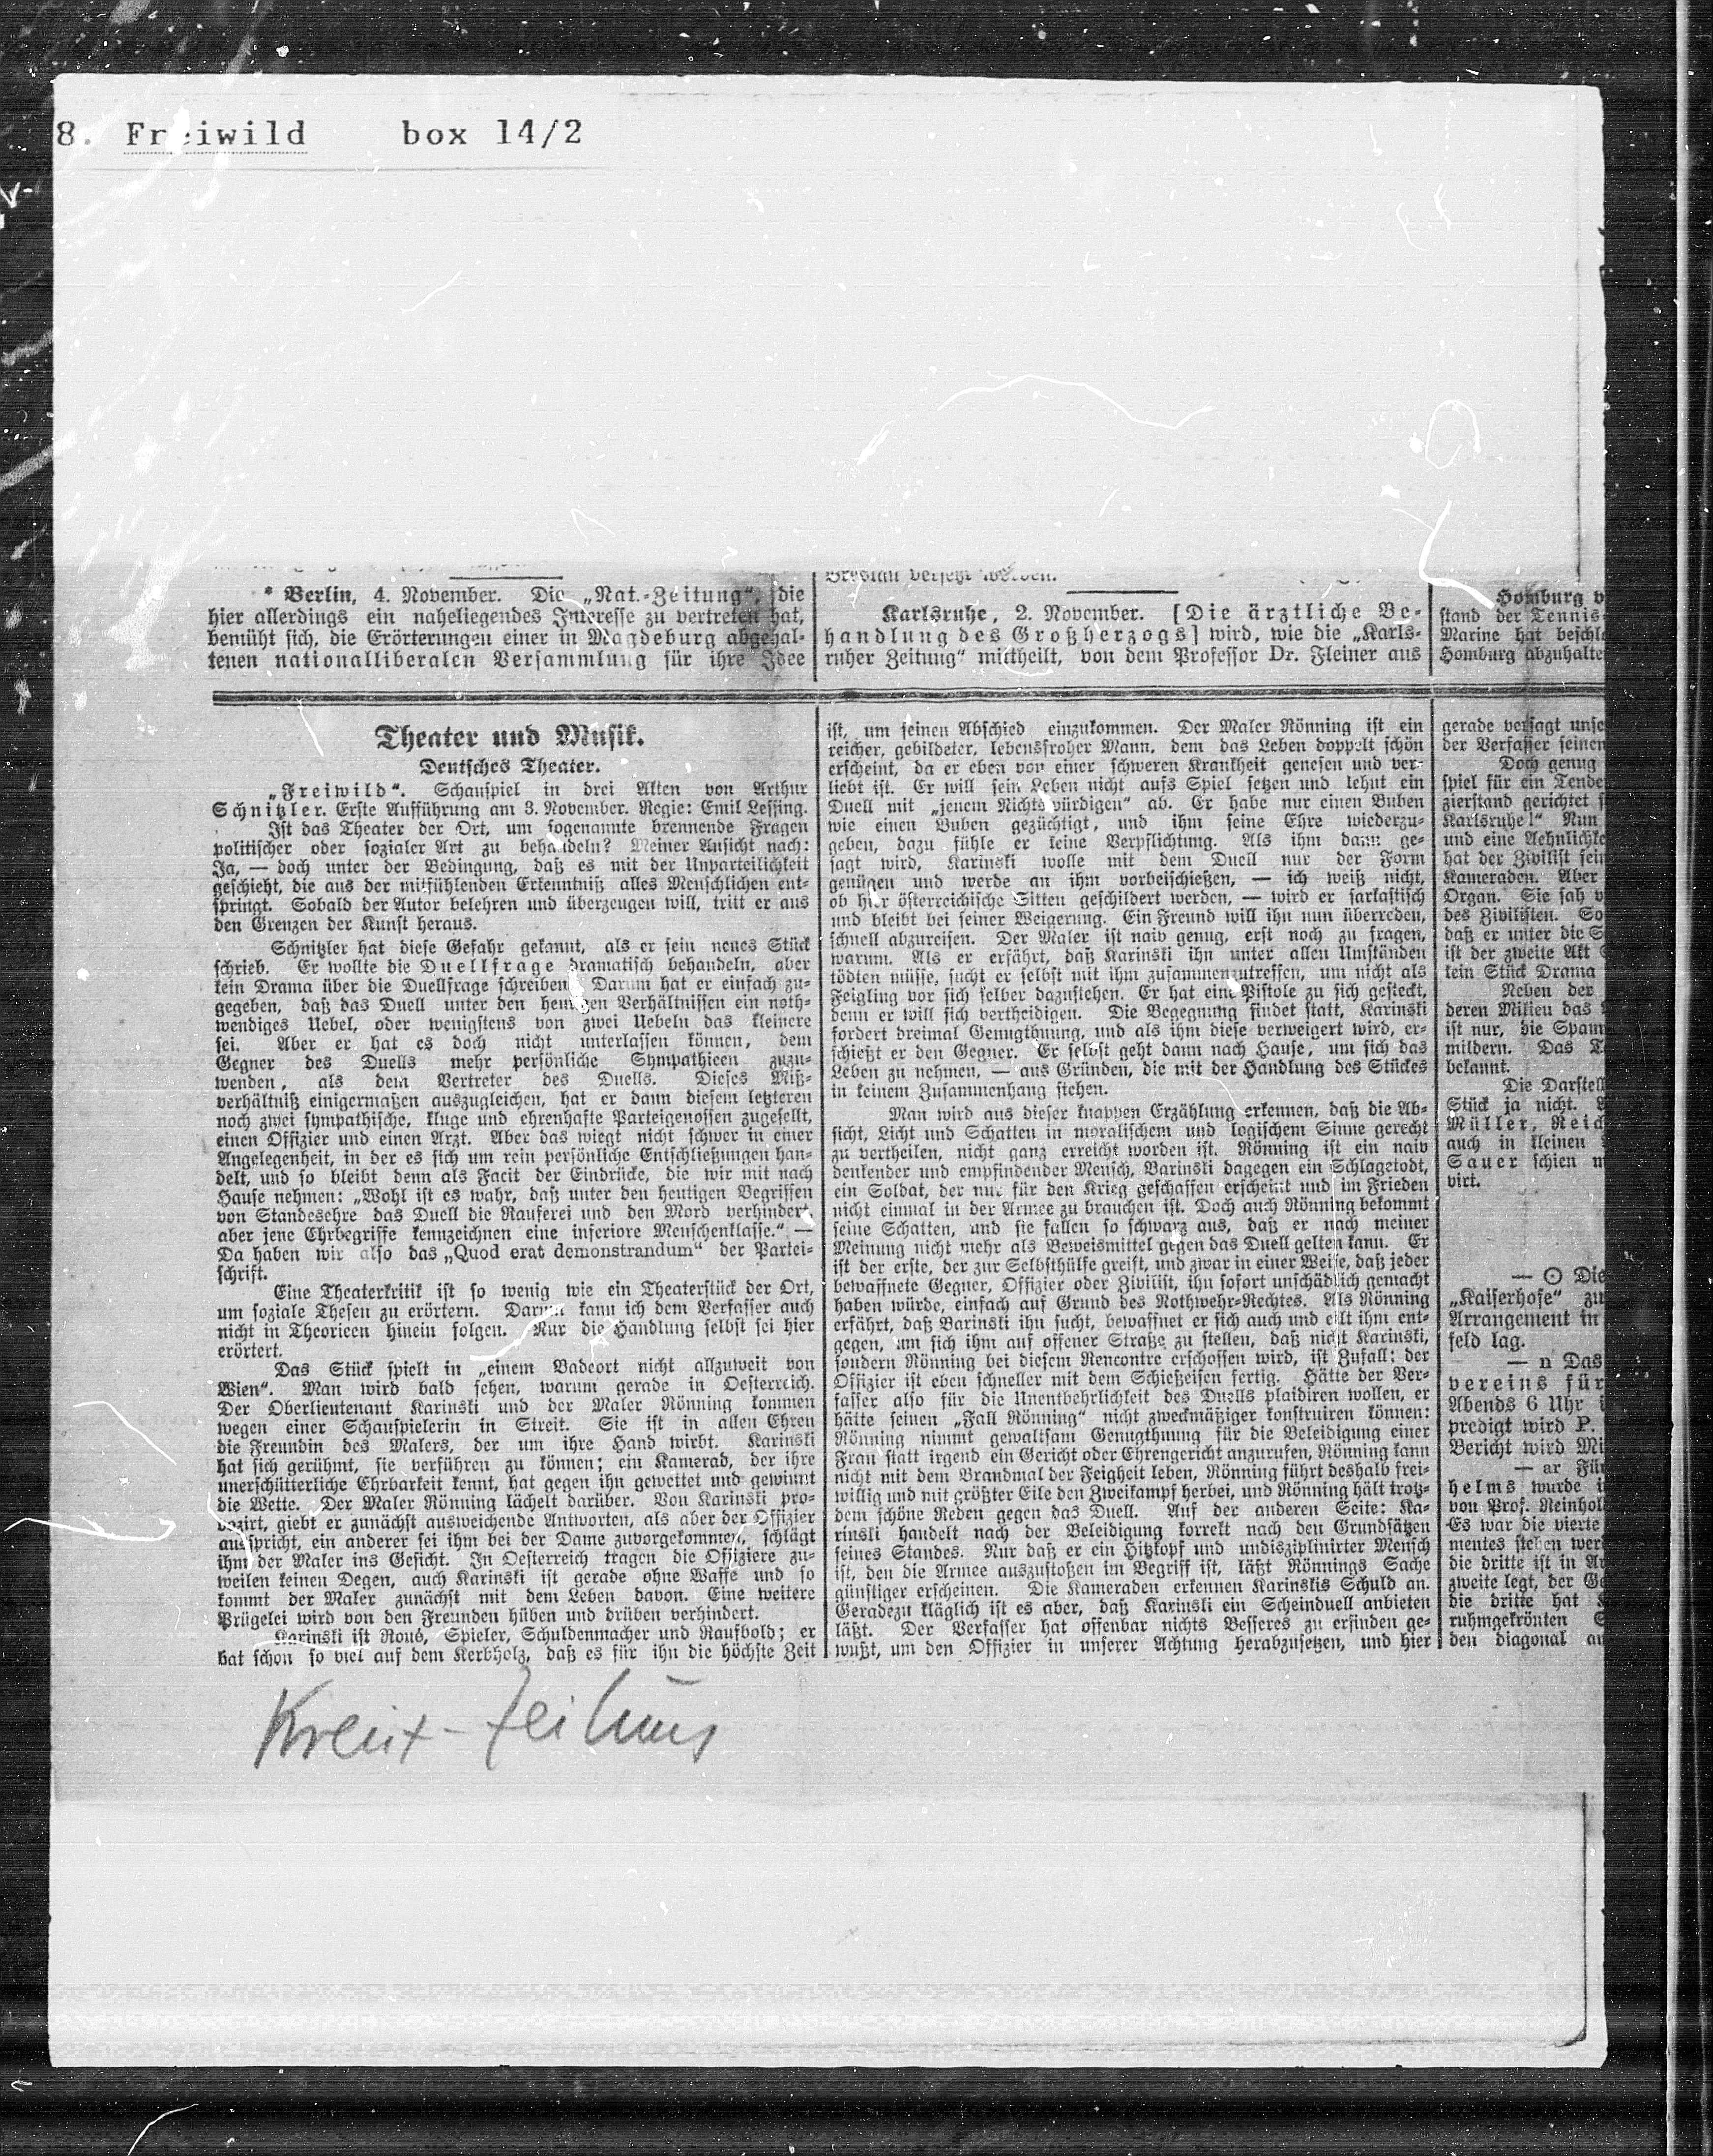 8. Freiwild box 14/2
* Berlin, 4. November. Die „Nat.-Zeitung“, die
hier allerdings ein naheliegendes Interesse zu vertreten hat,
bemüht sich, die Erörterungen einer in Magdeburg abgehal-
tenen nationalliberalen Versammlung für ihre Idee
Breslau versetzt worden.
Karlsruhe, 2. November. [Die ärztliche Be-
handlung des Großherzogs] wird, wie die „Karls-
ruher Zeitung“ mittheilt, von dem Professor Dr. Fleiner aus
Homburg v
stand der Tennis-
Marine hat beschlo
Homburg abzuhalte
Theater und Musik.
Deutsches Theater.
„Freiwild“. Schauspiel in drei Akten von Arthur
Schnitzler. Erste Aufführung am 3. November. Regie: Emil Lessing.
Ist das Theater der Ort, um sogenannte brennende Fragen
politischer oder sozialer Art zu behandeln? Meiner Ansicht nach:
Ja, — doch unter der Bedingung, daß es mit der Unparteilichkeit
geschieht, die aus der mitfühlenden Erkenntniß alles Menschlichen ent-
springt. Sobald der Autor belehren und überzeugen will, tritt er aus
den Grenzen der Kunst heraus.
Schnitzler hat diese Gefahr gekannt, als er sein neues Stück
schrieb. Er wollte die Duellfrage dramatisch behandeln, aber
kein Drama über die Duellfrage schreiben. Darum hat er einfach zu-
gegeben, daß das Duell unter den heutigen Verhältnissen ein noth-
wendiges Uebel, oder wenigstens von zwei Uebeln das kleinere
sei. Aber er hat es doch nicht unterlassen können, dem
Gegner des Duells mehr persönliche Sympathieen zuzu-
wenden, als dem Vertreter des Duells. Dieses Miß-
verhältniß einigermaßen auszugleichen, hat er dann diesem letzteren
noch zwei sympathische, kluge und ehrenhafte Parteigenossen zugesellt,
einen Offizier und einen Arzt. Aber das wiegt nicht schwer in einer
Angelegenheit, in der es sich um rein persönliche Entschließungen han-
delt, und so bleibt denn als Facit der Eindrücke, die wir mit nach
Hause nehmen: „Wohl ist es wahr, daß unter den heutigen Begriffen
von Standesehre das Duell die Rauferei und den Mord verhindert,
aber jene Ehrbegriffe kennzeichnen eine inferiore Menschenklasse.“ —
Da haben wir also das „Quod erat demonstrandum“ der Partei-
schrift.
Eine Theaterkritik ist so wenig wie ein Theaterstück der Ort,
um soziale Thesen zu erörtern. Darum kann ich dem Verfasser auch
nicht in Theorieen hinein folgen. Nur die Handlung selbst sei hier
erörtert.
Das Stück spielt in „einem Badeort nicht allzuweit von
Wien“. Man wird bald sehen, warum gerade in Oesterreich.
Der Oberlieutenant Karinski und der Maler Rönning kommen
wegen einer Schauspielerin in Streit. Sie ist in allen Ehren
die Freundin des Malers, der um ihre Hand wirbt. Karinski
hat sich gerühmt, sie verführen zu können; ein Kamerad, der ihre
unerschütterliche Ehrbarkeit kennt, hat gegen ihn gewettet und gewinnt
die Wette. Der Maler Rönning lächelt darüber. Von Karinski pro-
vozirt, giebt er zunächst ausweichende Antworten, als aber der Offizier
ausspricht, ein anderer sei ihm bei der Dame zuvorgekommen, schlägt
ihm der Maler ins Gesicht. In Oesterreich tragen die Offiziere zu-
weilen keinen Degen, auch Karinski ist gerade ohne Waffe und so
kommt der Maler zunächst mit dem Leben davon. Eine weitere
Prügelei wird von den Freunden hüben und drüben verhindert.
Karinski ist Roué, Spieler, Schuldenmacher und Raufbold; er
hat schon so viel auf dem Kerbholz, daß es für ihn die höchste Zeit
ist, um seinen Abschied einzukommen. Der Maler Rönning ist ein
reicher, gebildeter, lebensfroher Mann, dem das Leben doppelt schön
erscheint, da er eben von einer schweren Krankheit genesen und ver-
liebt ist. Er will sein Leben nicht aufs Spiel setzen und lehnt ein
Duell mit „jenem Nichtswürdigen“ ab. Er habe nur einen Buben
wie einen Buben gezüchtigt, und ihm seine Ehre wiederzu-
geben, dazu fühle er keine Verpflichtung. Als ihm dann ge-
sagt wird, Karinski wolle mit dem Duell nur der Form
genügen und werde an ihm vorbeischießen, — ich weiß nicht,
ob hier österreichische Sitten geschildert werden, — wird er sarkastisch
und bleibt bei seiner Weigerung. Ein Freund will ihn nun überreden,
schnell abzureisen. Der Maler ist naiv genug, erst noch zu fragen,
warum. Als er erfährt, daß Karinski ihn unter allen Umständen
tödten müsse, sucht er selbst mit ihm zusammenzutreffen, um nicht als
Feigling vor sich selber dazustehen. Er hat eine Pistole zu sich gesteckt,
denn er will sich vertheidigen. Die Begegnung findet statt, Karinski
fordert dreimal Genugthuung, und als ihm diese verweigert wird, er-
schießt er den Gegner. Er selbst geht dann nach Hause, um sich das
Leben zu nehmen, — aus Gründen, die mit der Handlung des Stückes
in keinem Zusammenhang stehen.
Man wird aus dieser knappen Erzählung erkennen, daß die Ab-
sicht, Licht und Schatten in moralischem und logischem Sinne gerecht
zu vertheilen, nicht ganz erreicht worden ist. Rönning ist ein naiv
denkender und empfindender Mensch, Barinski dagegen ein Schlagetodt,
ein Soldat, der nur für den Krieg geschaffen erscheint und im Frieden
nicht einmal in der Armee zu brauchen ist. Doch auch Rönning bekommt
seine Schatten, und sie fallen so schwarz aus, daß er nach meiner
Meinung nicht mehr als Beweismittel gegen das Duell gelten kann. Er
ist der erste, der zur Selbsthülfe greift, und zwar in einer Weise, daß jeder
bewaffnete Gegner, Offizier oder Zivilist, ihn sofort unschädlich gemacht
haben würde, einfach auf Grund des Nothwehr-Rechtes. Als Rönning
erfährt, daß Barinski ihn sucht, bewaffnet er sich auch und eilt ihm ent-
gegen, um sich ihm auf offener Straße zu stellen, daß nicht Karinski,
sondern Rönning bei diesem Rencontre erschossen wird, ist Zufall; der
Offizier ist eben schneller mit dem Schießeisen fertig. Hätte der Ver-
fasser also für die Unentbehrlichkeit des Duells plaidiren wollen, er
hätte seinen „Fall Rönning“ nicht zweckmäßiger konstruiren können:
Rönning nimmt gewaltsam Genugthuung für die Beleidigung einer
Frau statt irgend ein Gericht oder Ehrengericht anzurufen, Rönning kann
nicht mit dem Brandmal der Feigheit leben, Rönning führt deshalb frei-
willig und mit größter Eile den Zweikampf herbei, und Rönning hält trotz-
dem schöne Reden gegen das Duell. Auf der anderen Seite: Ka-
rinski handelt nach der Beleidigung korrekt nach den Grundsätzen
seines Standes. Nur daß er ein Hitzkopf und undisziplinirter Mensch
ist, den die Armee auszustoßen im Begriff ist, läßt Rönnings Sache
günstiger erscheinen. Die Kameraden erkennen Karinskis Schuld an.
Geradezu kläglich ist es aber, daß Karinski ein Scheinduell anbieten
läßt. Der Verfasser hat offenbar nichts Besseres zu erfinden ge-
wußt, um den Offizier in unserer Achtung herabzusetzen, und hier
gerade versagt unse
der Verfasser seinen
Doch genug
spiel für ein Tende
zierstand gerichtet s
Karlsruhe!“ Nun
und eine Aehnlichke
hat der Zivilist sein
Kameraden. Aber
Organ. Sie sah v
des Zivilisten. So
daß er unter die S
ist der zweite Akt
kein Stück Drama
Neben der
deren Milieu das
ist nur, die Spann
mildern. Das T
bekannt.
Die Darstell
Stück ja nicht.
Müller, Reich
auch in kleinen
Sauer schien m
virt.
— ⊙ Die
„Kaiserhofe“ zu
Arrangement in
feld lag.
— n Das
vereins für
Abends 6 Uhr i
predigt wird P.
Bericht wird Mi
— ar Für
helms wurde i
von Prof. Reinhol
Es war die vierte
mentes stehen werd
die dritte ist in
zweite legt, der Ge
die dritte hat
ruhmgekrönten
den diagonal an
Kreuz-Zeitung